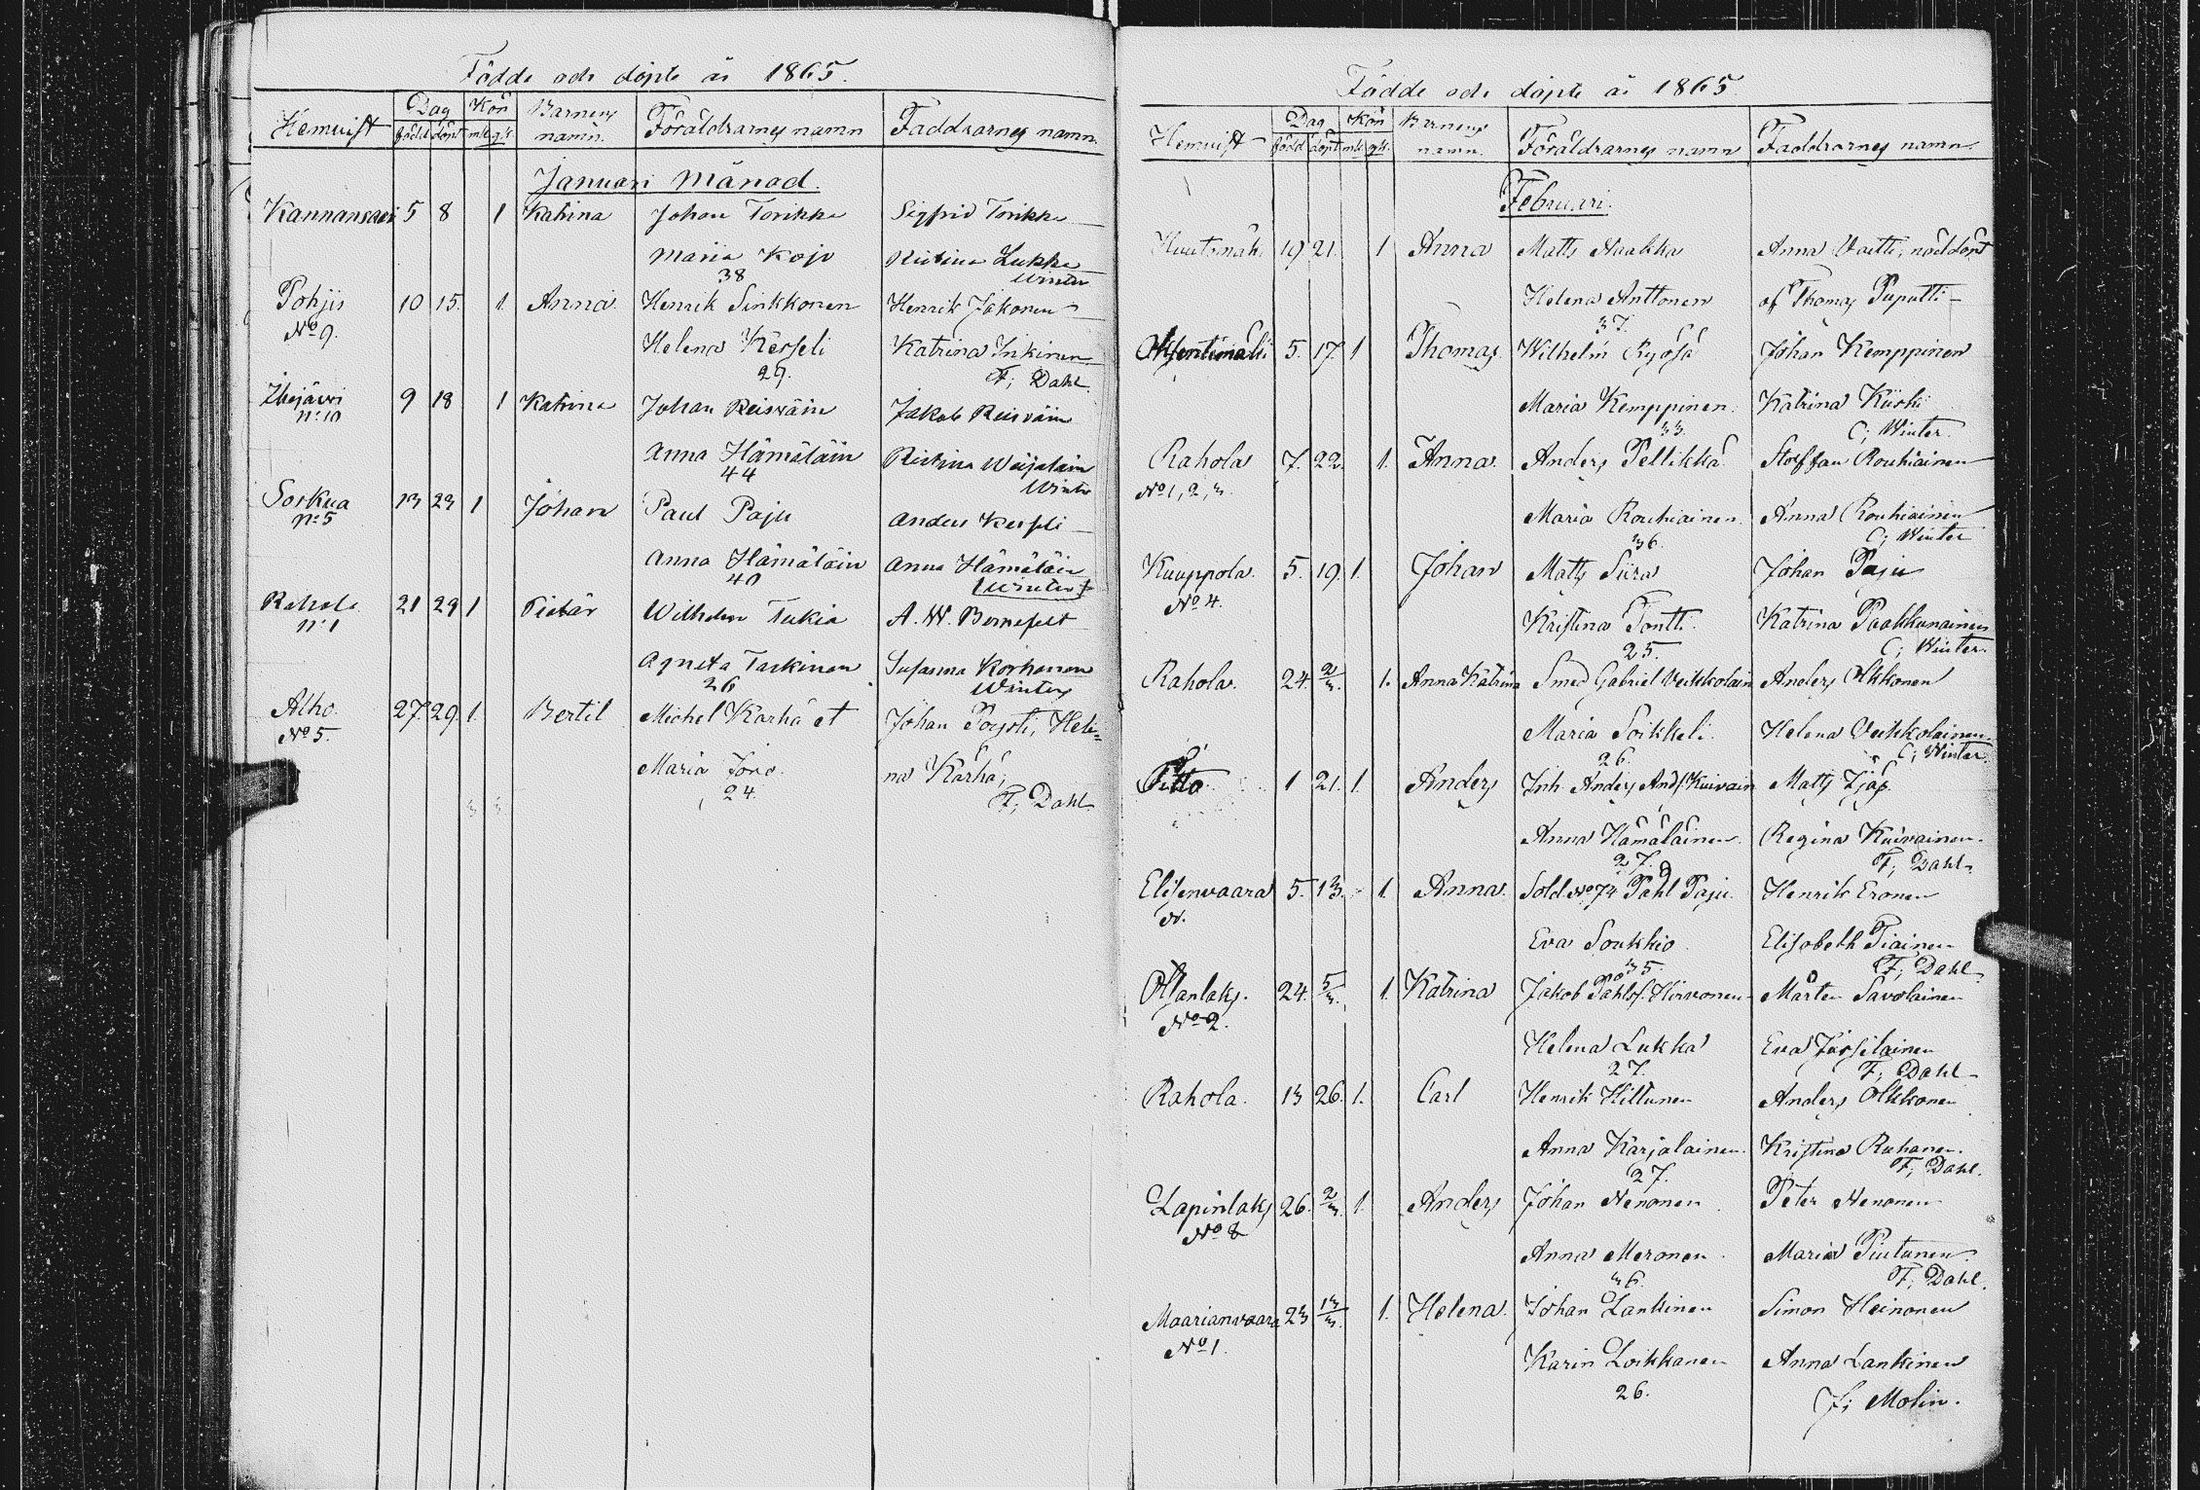 Födde och döpte år 1865.
Hemvist Dag Kön Barnens namn. Föräldrarnes namn Faddrarnes namn.
född döpt mk. qk.
Januari Månad.
Kannansaari 5 8 1 Katrina Johan Torikka Sigfrid Torikka
Maria Kojo Ristina Lukka
38 Winter
Pohjis 10 15. 1. Anna Henrik Sinkkonen Henrik Jakonen
No 9. Helena Kesseli Katrina Inkinen
29. F; Dahl
Ihojärvi 9 18 1 Katrina Johan Reisväin Jakob Reisväin
No 10 Anna Hämäläin Ristina
44 Winter
Sorkua 13 23 1 Johan Paul Paju Anders Kesseli
No 5 Anna Hämäläin Anna Hämäläin
40 Winter
Rahola 21 29 1 Pietär Wilhelm Tukia A. W.
No 1 Agneta Taskinen Susanna Korhonen
26 Winter
Alho 27. 29. 1. Bertil Michel Karhä et Johan Pojsti, Hele=
No 5. Maria Joro. na Karhä,
24. F; Dahl
Födde och döpte år 1865
Hemvist Dag Kön Barnens namn. Föräldrarnes namn Faddrarnes namn.
född döpt mk. qk.
Februari.
19 21. 1 Anna Matts Aaakka Anna Vaitti, nöddöpt
Helena Anttonen af Thomas Puputti
37.
5. 17. 1 Thomas Wilhelm Ryösä Johan Kemppinen
Maria Kemppinen. Katrina Kiiski
33. C; Winter.
Rahola 7. 22. 1. Anna. Anders Pellikkä Staffan Rouhiainen
No 1, 2, 3. Maria Rouhiainen. Anna Rouhiainen
36. C; Winter
Kuuppola. 5. 19. 1. Johan Matts Siira Johan Paju
No 4. Kristina Tontti. Katrina Paakkunainen
25. C; Winter.
Rahola. 24. 2/3. 1. Anna Katrina Smed Gabriel Veikkolain Anders Olkkonen
Maria Soikkeli. Helena Veikkolainen.
26. C; Winter.
1 21. 1. Anders Inh. Anders Ands. Kuivain Matts
Anna Hämäläinen. Regina Kuivainen.
27. F; Dahl.
Elisenvaara 5. 13. 1. Anna. Sold. No 74 Påhl Paju. Henrik Eronen
Eva Soukkio Elisabeth Piainen
35. F; Dahl
Ottanlaks. 24. 5/3. 1. Katrina Jakob Påhlss. Hirvonen Mårten Savolainen
No 2. Helena Lukka Eva Jässilainen
27. F; Dahl
Rahola. 13 26. 1. Carl Henrik Hiltunen Anders Olkkonen
Anna Karjalainen. Kristina Ruhanen.
27. F; Dahl.
Lapinlaks 26. 2/3. 1. Anders Johan Nenonen Peter Nenonen
No 8 Anna Meronen Maria Piutunen
36. F; Dahl.
Maarianvaara 23 13/3. 1. Helena. Johan Lankinen Simon Heinonen
No 1. Karin Loikkanen Anna Lankinen
26. J; Molin.